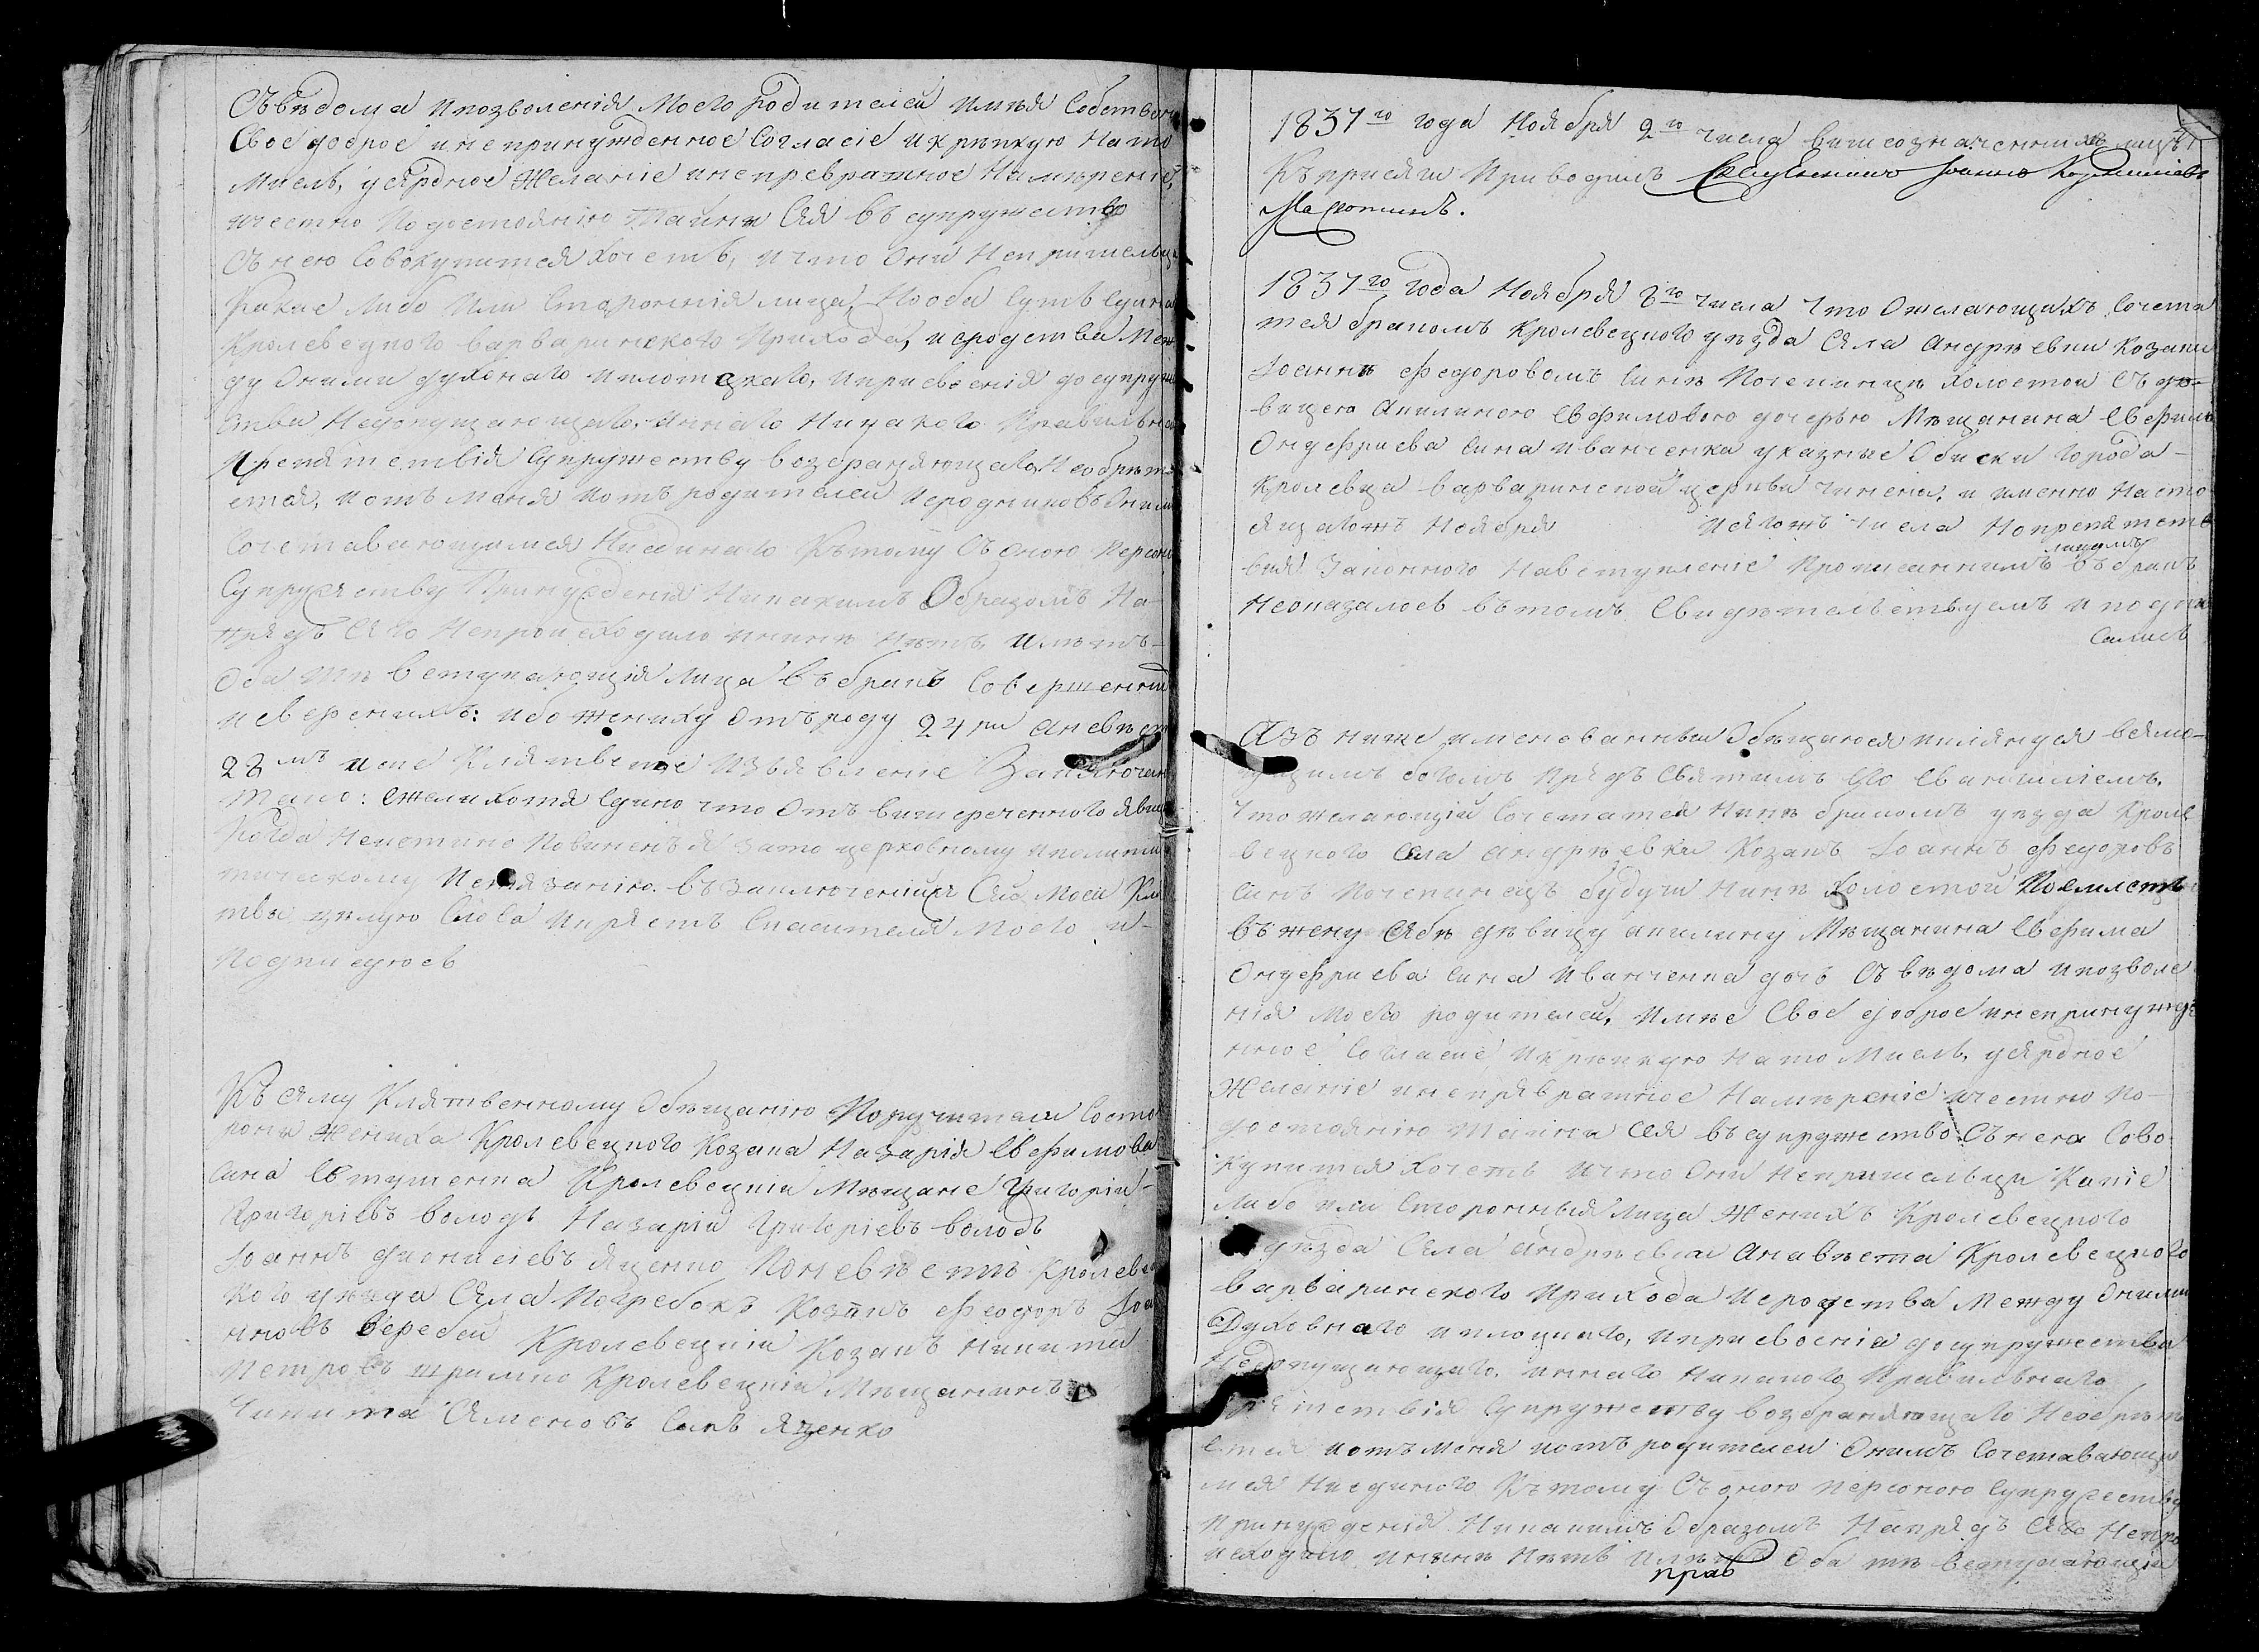 Съ вѣдома и позволенія моего родителей имѣя собствен
свое доброе и непринужденное согласіе и крѣпкую на то
мысль, усердное желаніе и непревратное намѣреніе,
и честно по достоянію тайны сея въ супружество
съ нею совокупится хочетъ, и что они не пришельцы
какие либо или сторонніе лица, но оба суть едина
Кролевецкого варваринского прихода, и сродства меж
ду оными духовнаго и плотскаго, и присвоенія до супруже
ства недопущающаго, инаго никакого правильна
препятствія супружеству возбраняющаго не обрѣта
ется, и отъ меня и отъ родителей и сродниковъ оным
сочетавающимся ниединаго къ тому съ оною персоною
супружеству принужденія никакимъ образомъ на
предъ сего непроисходило и нынѣ нѣтъ, и лѣтъ
оба тѣ вступающія лица въ бракъ совершенн
ибо жениху отъ роду 24 а невѣст
28мъ и сие клятвенное изъявленіе заключаю
тако: ежели хотя едино что отъ вышереченного яви
когда неистинно повиненъ я за то церковному и полити
тическому истязанію. въ заключеніи сей моей кля
твы цѣлую слова и крестъ спасителя моего и
подписуюсь
Къ сему клятвенному обѣщанію поручители состо
роны жениха Кролевецкого козака Назарія Евфимова
сына Евтушенка Кролевецкіи мѣщане Григорій
Григоріевъ володь Назарій Григоріевъ володь
Іоаннъ Діонисіевъ Яценко По невѣстѣ Кролевец
кого уѣзда села Погребокъ козакъ Феодоръ Іоа
нновъ Веребей Кролевецкіи козакъ Никита
Петровъ Кролевецкіи мѣщанинъ
Никита Семеновъ сынъ Яценко
1837го года Ноября 2го числа вышеозначенныхъ лицъ
къ присяги приводилъ Священникъ Іоаннъ

1837го года Ноября 8го числа что о желающихъ сочета
тся бракомъ кролевецкого уѣзда села Андрѣевки козаки
Іоаннѣ Федоровомъ сынѣ холостой съ дѣ
вицею Акилиною Евфимовою дочерью мѣщанина Евфима
Онуфріева сына Иванченка указные обыски города
Кролевца варваринской церквы чинены, и именно насто
ящагожъ ноября и сягожъ числа но препятств
вія законного на вступленіе прописаннымъ лицамъ въ бракъ
неоказалось въ томъ свидѣтельствуемъ и подпи
сались
Азъ нижеименованный обѣщаюся и клянуся всемо
гущимъ богомъ предъ святымъ его евангеліемъ,
что желающій сочетатся нынѣ бракомъ уѣзда Кроле
вецкого села Андрѣевки козакъ Іоаннъ Федоровъ
сынъ будучи нынѣ холостой поемлетъ
въ жену себѣ дѣвицу Акилину мѣщанина Евфима
Онуфріева сына Иванченка дочь съ вѣдома и позволе
нія моего родителей, имѣе свое доброе и непринужде
нное согласіе, и крѣпкую на то мысль, усердное
желаніе и непревратное намѣреніе и честно по
достоянію тайны сея въ супружество съ нею сово
купится хочетъ и что они не пришельцы какіе
либо или сторонныя лица женихъ Кролевецкого
уѣзда села Андрѣевки а невѣста Кролевецкого
варваринского прихода и сродства между оными
духовнаго и плоцкаго, и присвоенія до супружества
недопущающаго, инаго никакого правильнаго
препятствія супружеству возбраняющаго не обрѣта
ется и отъ меня и отъ родителей онымъ сочетавающи
мся ниединого къ тому съ оною персоною супружеству
принужденія никакимъ образомъ напредъ сего непро
исходило и нынѣ нѣтъ и лѣтъ оба тѣ вступающія